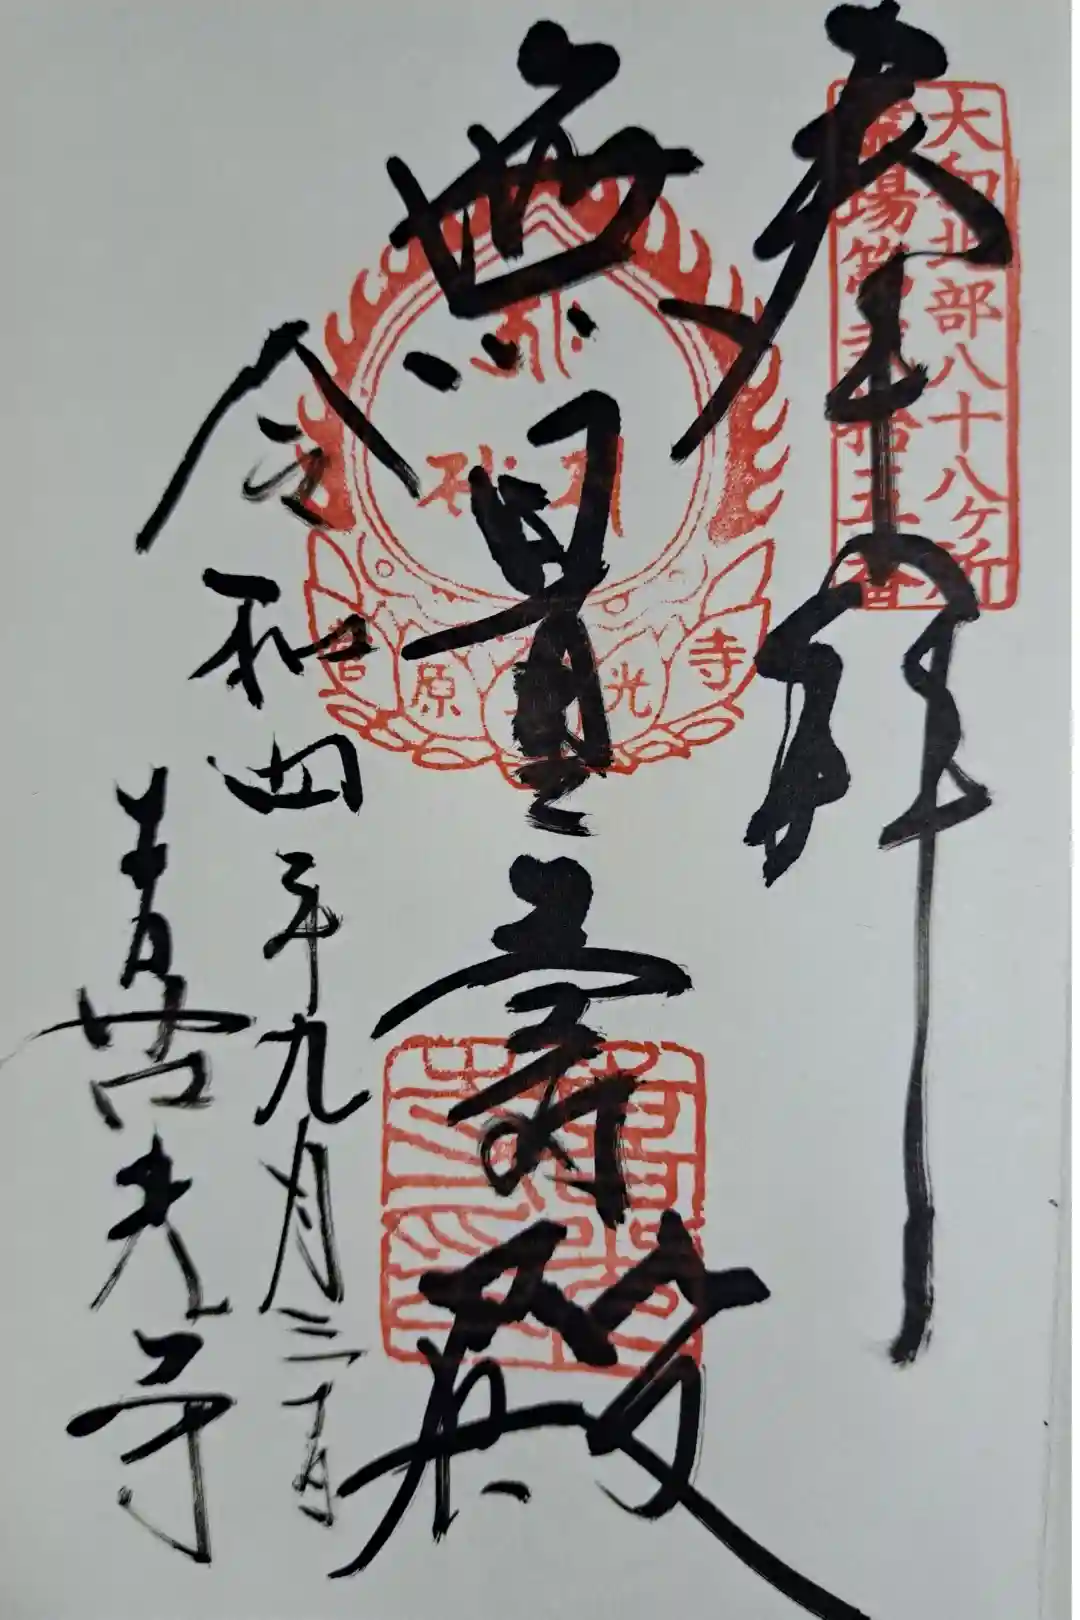 大和北部八十八ヶ所
霊場第弐拾五番
奉拝
無量寿殿
菅原喜光寺
令和四年九月三十日
喜光寺